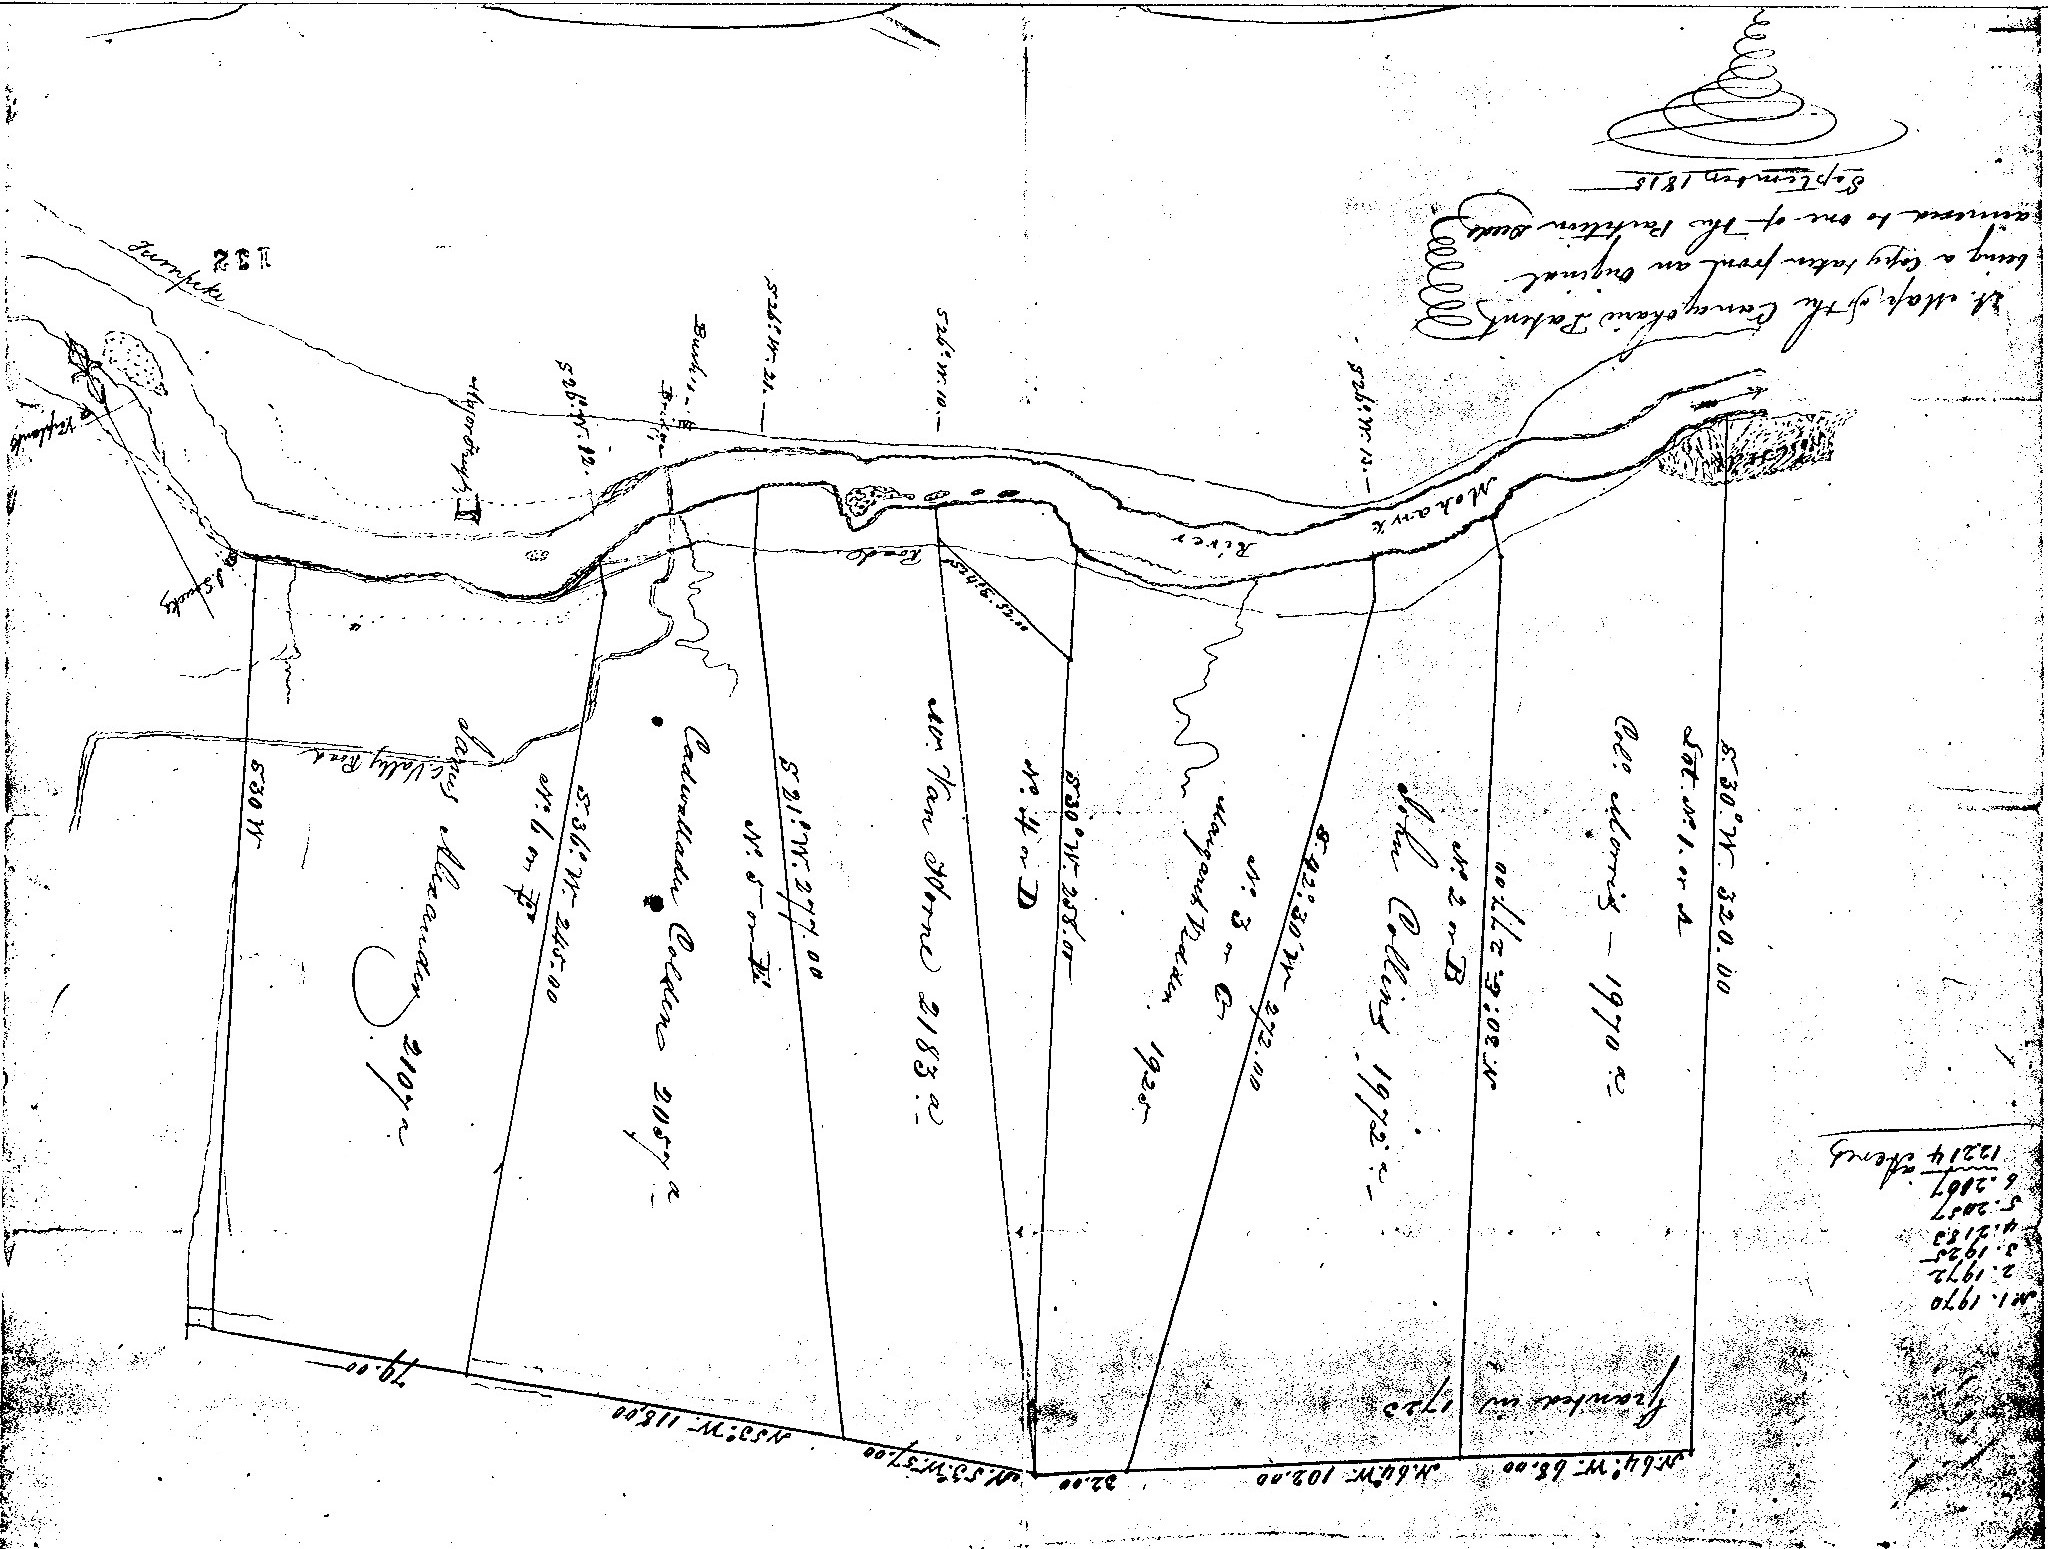 A Map of the Canajoharie Patent
being a Copy taken from an Original
annexed to one of the Partition Deeds
September 1815
132
Turnpike
S 26° W. 21.
S 26° W. 10
S 26° W. 13
S 26° W. 12.
Bridge
Mohawk
River
Road
C. Vally Road
Lot No. 1. or A
Col: Morris - 1970 a
S. 30° W. 320.00
No. 2 or B
John Collins 1972 a
N 30: E: 277.00
No. 3 or C
Margaret Vedder 1925
S. 42°: 30' W 272.00
No. 4 or D
Mr. Van Horne 2183 a
S 30° W. 258.00
No. 5 or E
Cadwallader Colden 2057 a
S 21° W. 277.00
No. 6 or F
James Alexander 2107 a
S. 36° W. 245.00
S 30 W
Granted in 1723
N. 64° W. 68.00
N. 64 W. 102.00
32.00
N. 53° W. 57.00
N 53° W. 118.00
79.00
No 1. 1970
2. 1972
3. 1925
4. 2183
5. 2057
6. 2107
12214 Acres